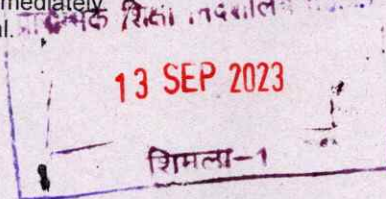 mmediately
al.
शिक्षा
13 SEP 2023
शिमला-1